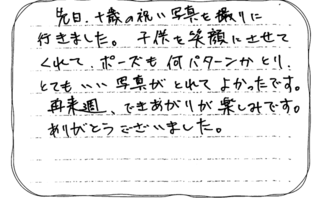 先日、十歳の祝い写真を撮りに
行きました。子供を笑顔にさせて
くれて、ポーズも何パターンかとり、
とてもいい写真がとれてよかったです。
再来週、できあがりが楽しみです。
ありがとうございました。